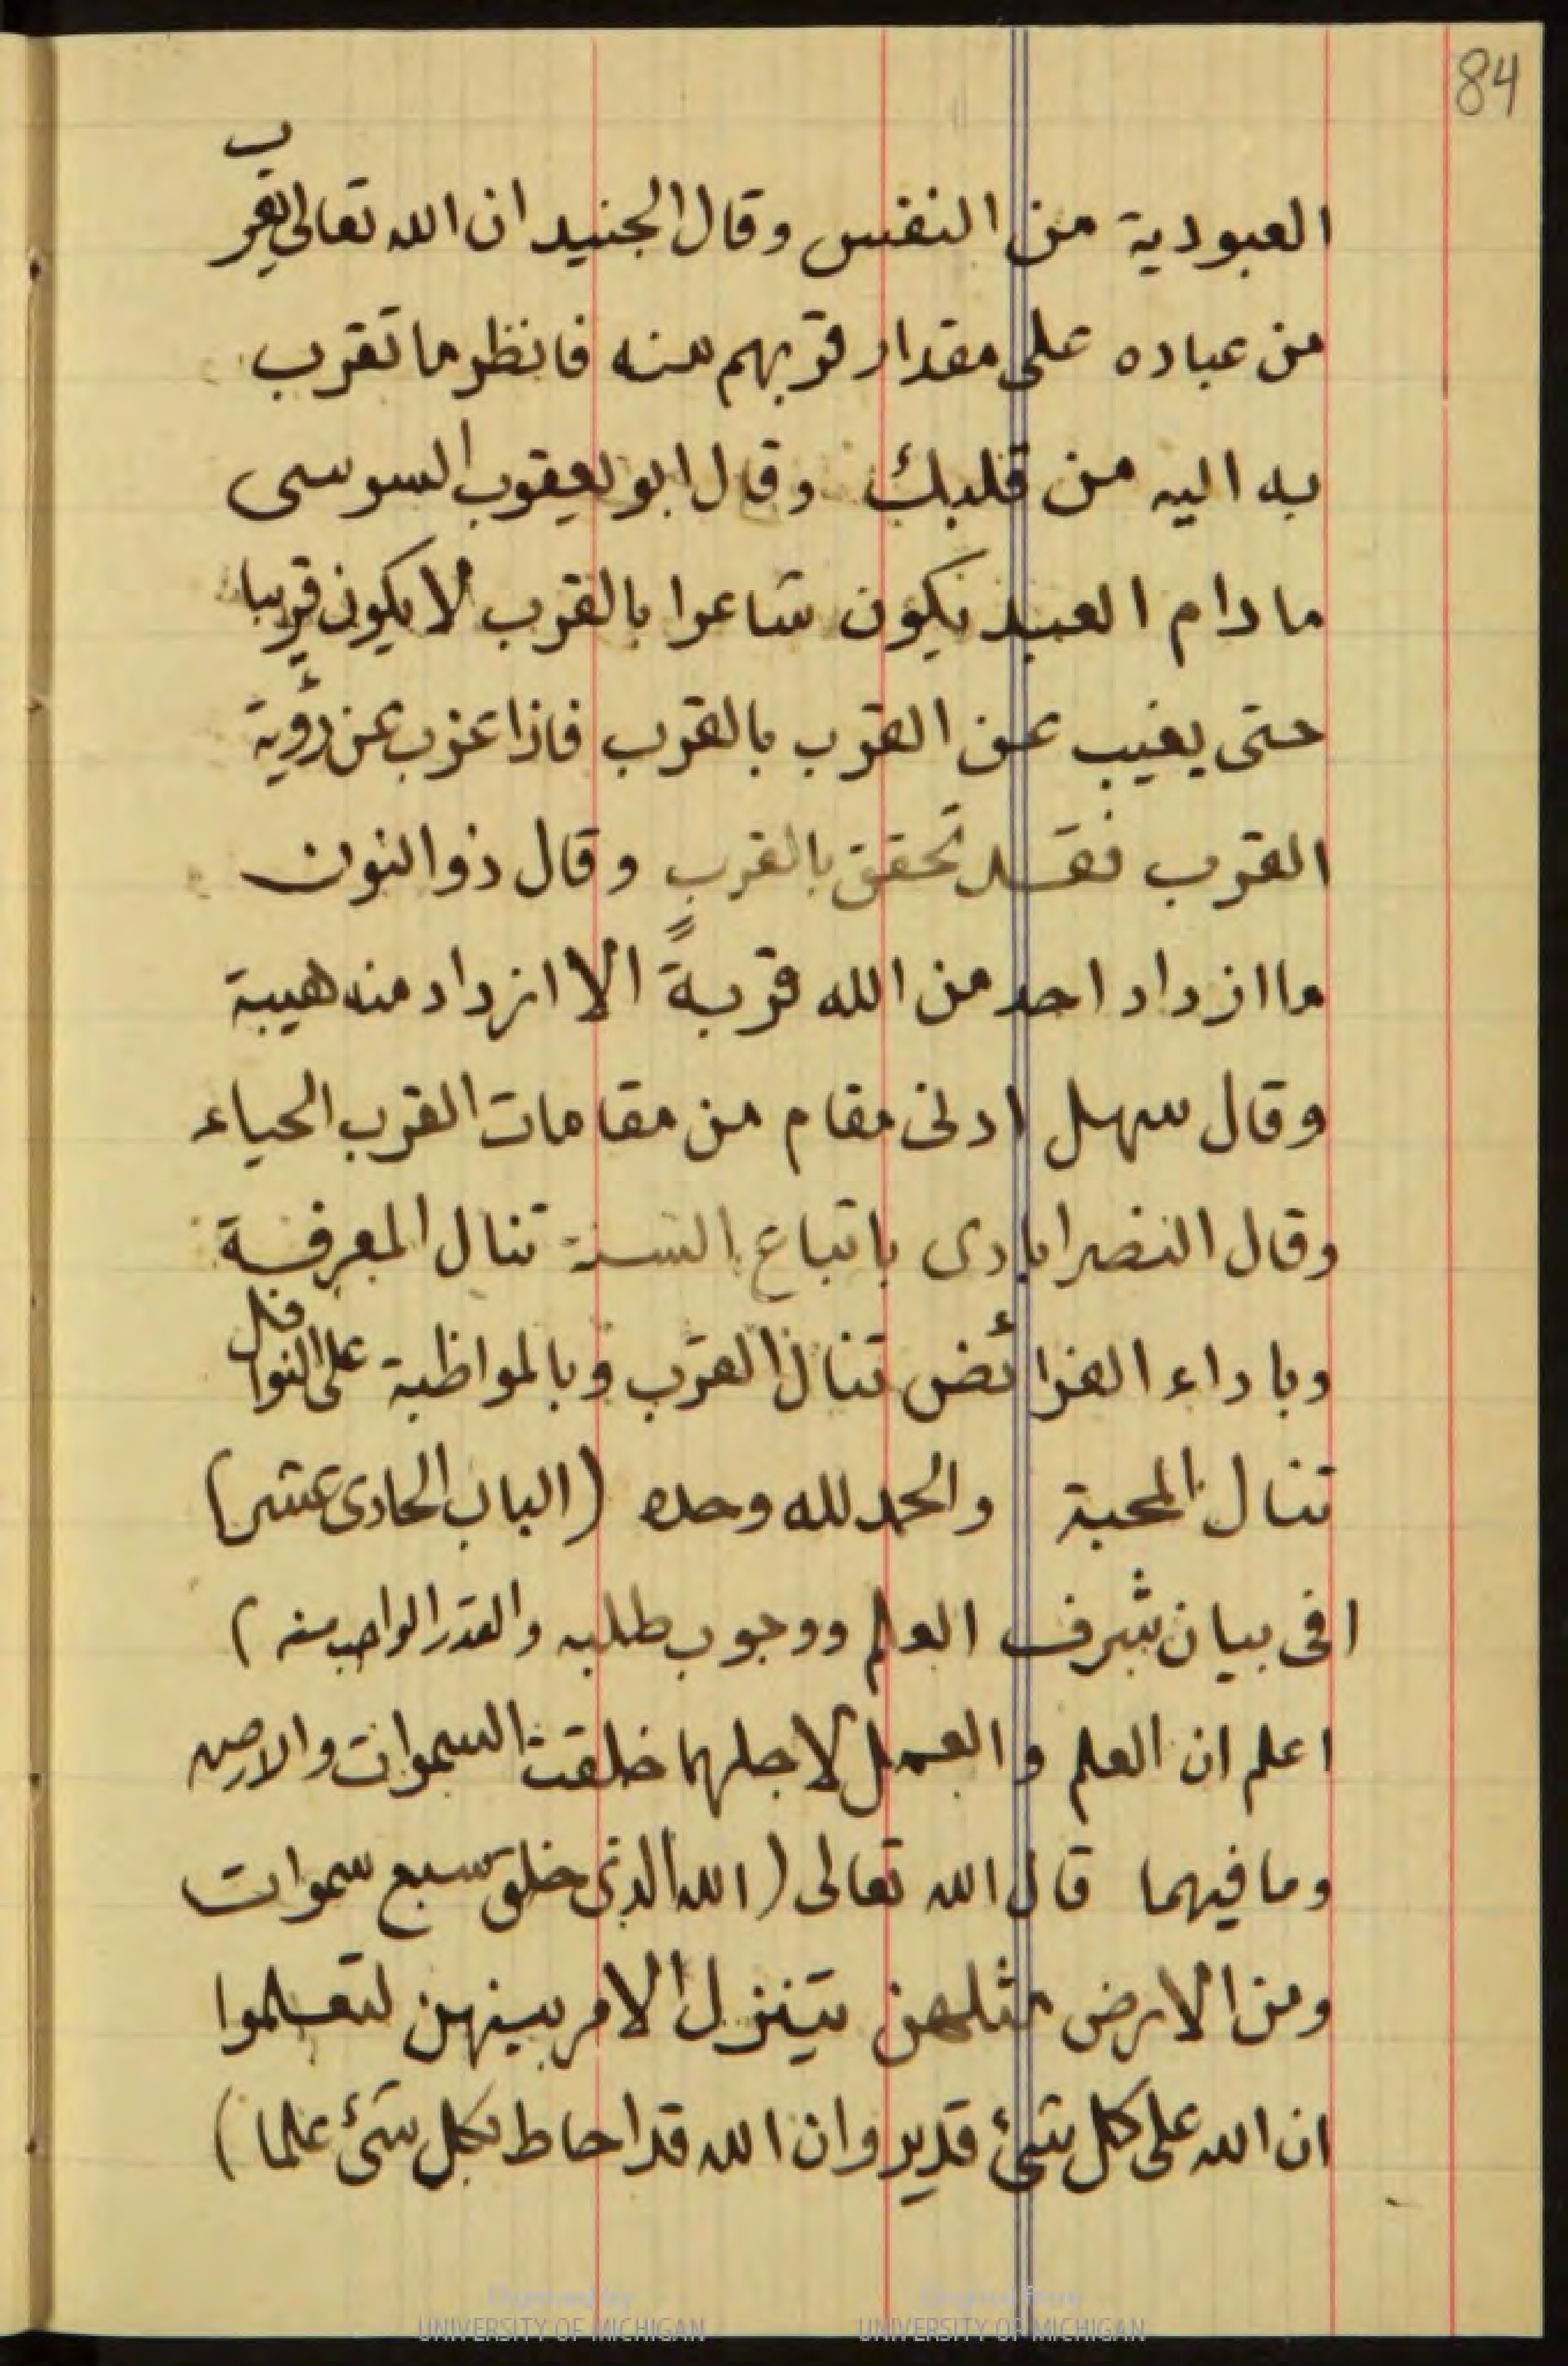 84
العبودية من النفس وقال الجنيد ان الله تعالى يقرب
من عباده على مقدار قربهم منه فانظر ما تقرب
به اليه من قلبك وقال ابو يعقوب السوسى
ما دام العبد يكون شاعرا بالقرب لا يكون قريبا
حتى يغيب عن القرب بالقرب فاذا عزب عن رؤية
القرب فقد تحقق بالقرب وقال ذو النون
ما ازداد احد من الله قربةً الا ازداد منه هيبة
وقال سهل ادنى مقام من مقامات القرب الحياء
وقال النصرابادى باتباع السنة تنال المعرفة
وباداء الفرائض تنال القرب وبالمواظبة على النوافل
تنال المحبة والحمد لله وحده (الباب الحادى عشر)
(فى بيان شرف العلم ووجوب طلبه والقدر الواجب منه)
اعلم ان العلم والعمل لاجلهما خلقت السموات والارض
وما فيهما قال الله تعالى (الله الذى خلق سبع سموات
ومن الارض مثلهن يتنزل الامر بينهن لتعلموا
ان الله على كل شئ قدير وان الله قد احاط بكل شئ علما)
Digitized by
UNIVERSITY OF MICHIGAN
Original from
UNIVERSITY OF MICHIGAN